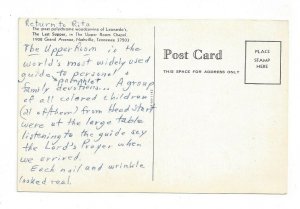 Return to Rita
The great polychrome woodcarving of Leonardo's
The Last Supper, in The Upper Room Chapel,
1908 Grand Avenue, Nashville, Tennessee 37203.
The Upper Room is the
world's most widely used
guide to personal &
pamphlet
family devotions... A group
of all colored children
(21 of them) from Head Start
were at the large table
listening to the guide say
the Lord's Prayer when
we arrived.
Each nail and wrinkle
looked real.
Post Card
THIS SPACE FOR ADDRESS ONLY
PLACE
STAMP
HERE